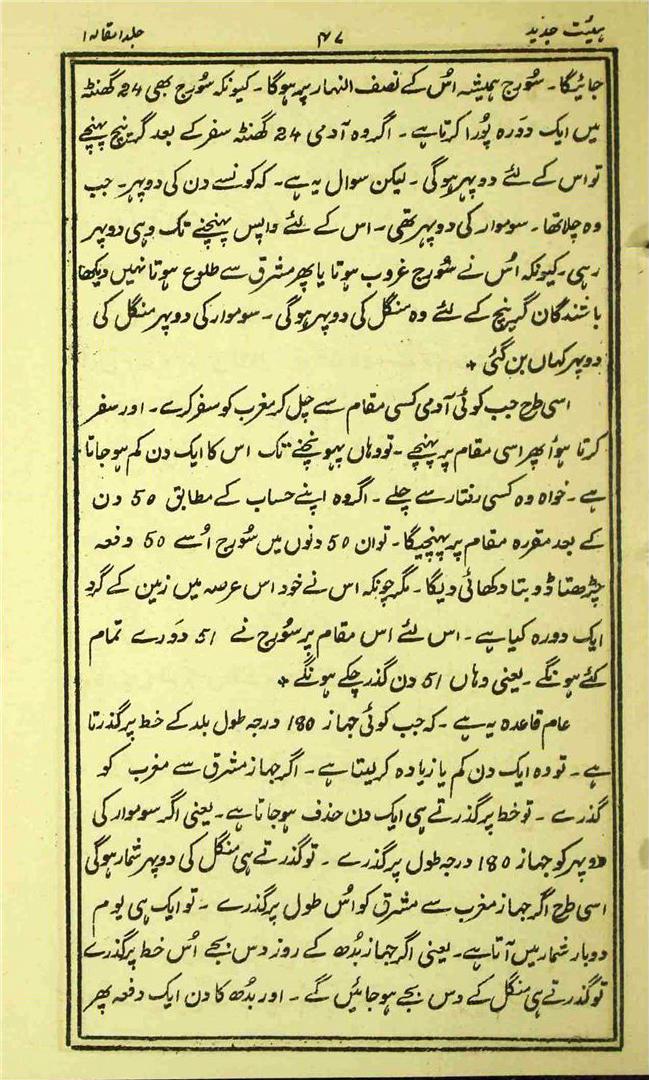 ہیئت جدید
۴۷
جلد ا مقالہ ا
جائیگا ۔ سُورج ہمیشہ اُس کے نصف النہار پر ہوگا ۔ کیونکہ سُورج بھی 24 گھنٹہ
میں ایک دَورہ پُورا کرتا ہے ۔ اگر وہ آدمی 24 گھنٹہ سفر کے بعد گرینچ پہنچے
تو اس کے لئے دوپہر ہوگی ۔ لیکن سوال یہ ہے ۔ کہ کونسے دن کی دوپہر ۔ جب
وہ چلا تھا ۔ سوموار کی دوپہر تھی ۔ اس کے لئے واپس پہنچنے تک وہی دوپہر
رہی ۔ کیونکہ اُس نے سُورج غروب ہوتا یا پھر مشرق سے طلوع ہوتا نہیں دیکھا
باشندگان گرینچ کے لئے وہ منگل کی دوپہر ہوگی ۔ سوموار کی دوپہر منگل کی
دوپہر کہاں بن گئی +
اسی طرح جب کوئی آدمی کسی مقام سے چل کر مغرب کو سفر کرے ۔ اور سفر
کرتا ہوُا پھر اسی مقام پر پہنچے ۔ تو وہاں پہونچنے تک اس کا ایک دن کم ہو جاتا
ہے ۔ خواہ وہ کسی رفتار سے چلے ۔ اگر وہ اپنے حساب کے مطابق 50 دن
کے بعد مقررہ مقام پر پہنچیگا ۔ تو ان 50 دنوں میں سُورج اُسے 50 دفعہ
چڑھتا ڈوبتا دکھائی دیگا ۔ مگر چونکہ اس نے خود اس عرصہ میں زمین کے گرد
ایک دورہ کیا ہے ۔ اس لئے اس مقام پر سُورج نے 51 دَورے تمام
کئے ہونگے ۔ یعنی وہاں 51 دن گذر چکے ہونگے +
عام قاعدہ یہ ہے ۔ کہ جب کوئی جہاز 180 درجہ طول بلد کے خط پر گذرتا
ہے ۔ تو وہ ایک دن کم یا زیادہ کر لیتا ہے ۔ اگر جہاز مشرق سے مغرب کو
گذرے ۔ تو خط پر گذرتے ہی ایک دن حذف ہو جاتا ہے ۔ یعنی اگر سوموار کی
دوپہر کو جہاز 180 درجہ طول پر گذرے ۔ تو گذرتے ہی منگل کی دوپہر شمار ہوگی
اسی طرح اگر جہاز مغرب سے مشرق کو اُس طول پر گذرے ۔ تو ایک ہی یوم
دوبار شمار میں آتا ہے ۔ یعنی اگر جہاز بُدھ کے روز دس بجے اُس خط پر گذرے
تو گذرتے ہی منگل کے دس بجے ہو جائیں گے ۔ اور بُدھ کا دن ایک دفعہ پھر